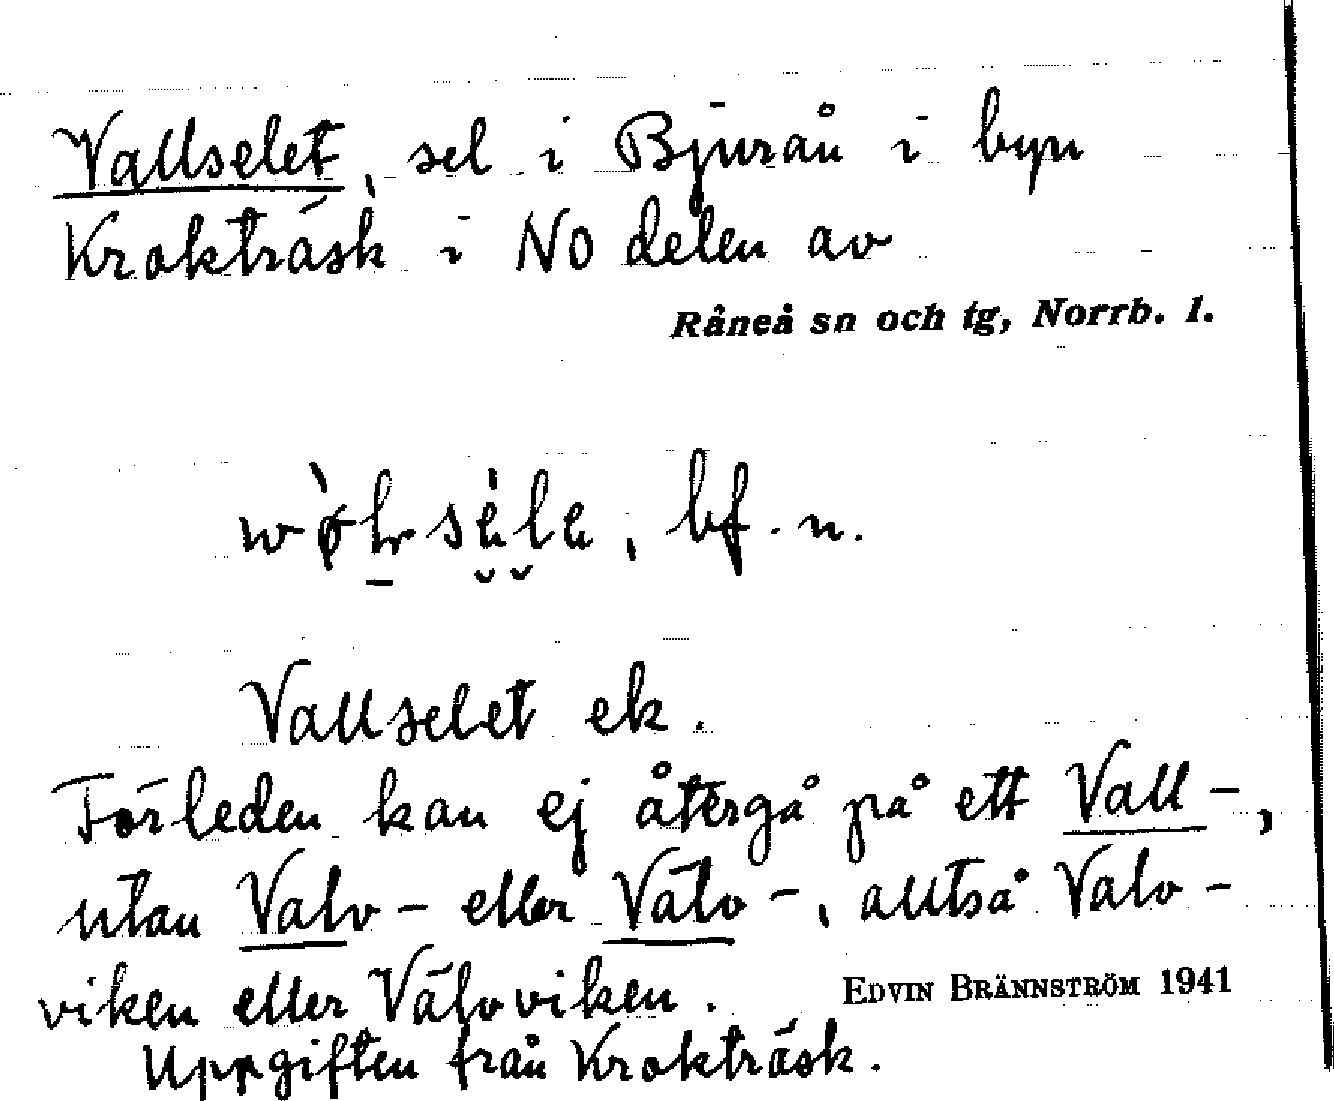 Vallselet, sel i Bjurån i byn
Krokträsk i NO delen av
Råneå sn och tg, Norrb. l.
bf. n.
Vallselet ek.
Förleden kan ej återgå på ett Vall-,
utan Valv- eller Välv-, alltså Valv-
viken eller Välvviken.
EDVIN BRÄNNSTRÖM 1941
Uppgiften från Krokträsk.